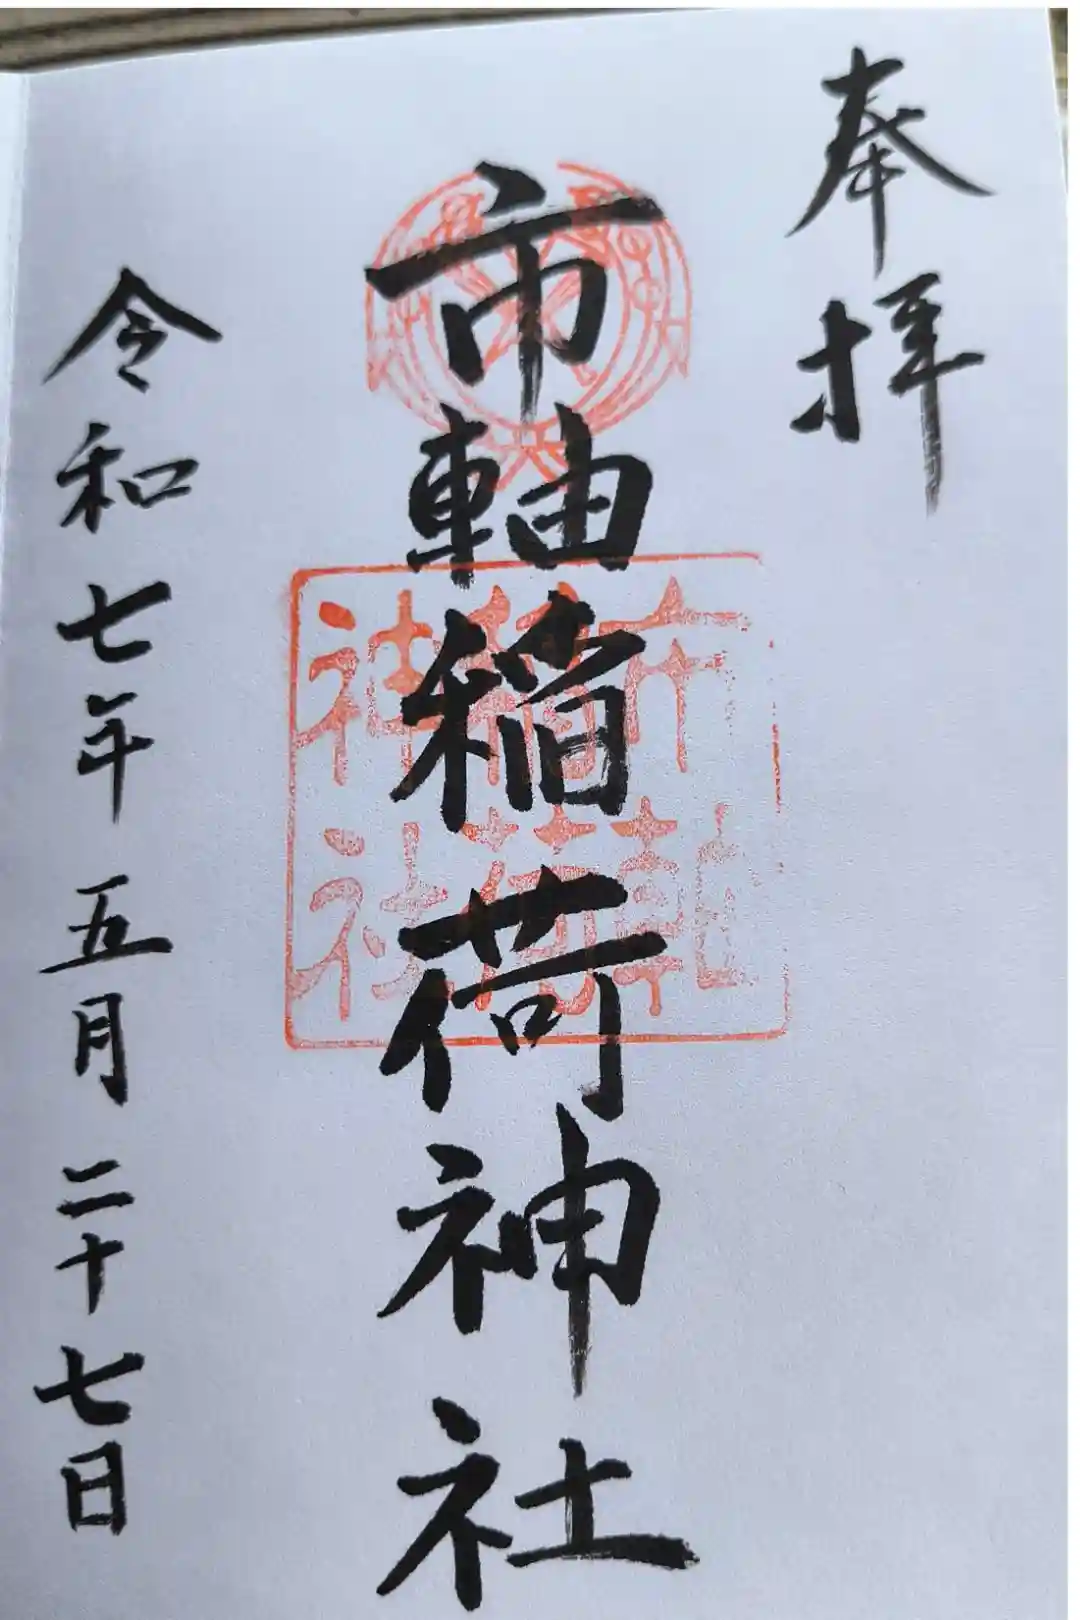 奉拝
市軸稲荷神社
市軸
稲荷
神社
令和七年五月二十七日